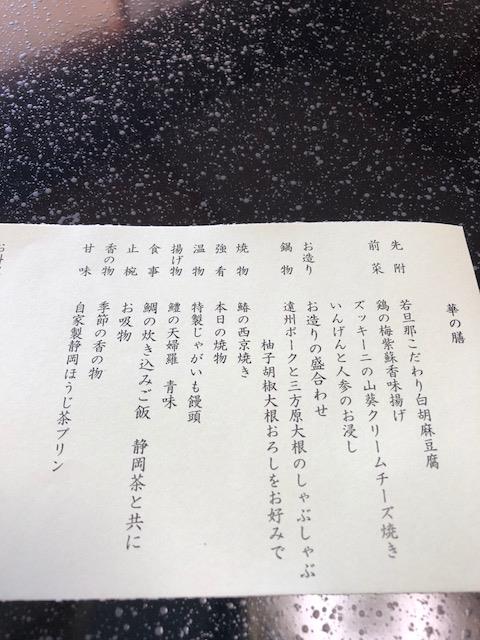 華の膳
先附 若旦那こだわり白胡麻豆腐
前菜 鶏の梅紫蘇香味揚げ
ズッキーニの山葵クリームチーズ焼き
いんげんと人参のお浸し
お造り お造りの盛合わせ
鍋物 遠州ポークと三方原大根のしゃぶしゃぶ
柚子胡椒大根おろしをお好みで
焼物 鰆の西京焼き
強肴 本日の焼物
温物 特製じゃがいも饅頭
揚げ物 鱧の天婦羅 青味
食事 鯛の炊き込みご飯 静岡茶と共に
止椀 お吸物
香の物 季節の香の物
甘味 自家製静岡ほうじ茶プリン